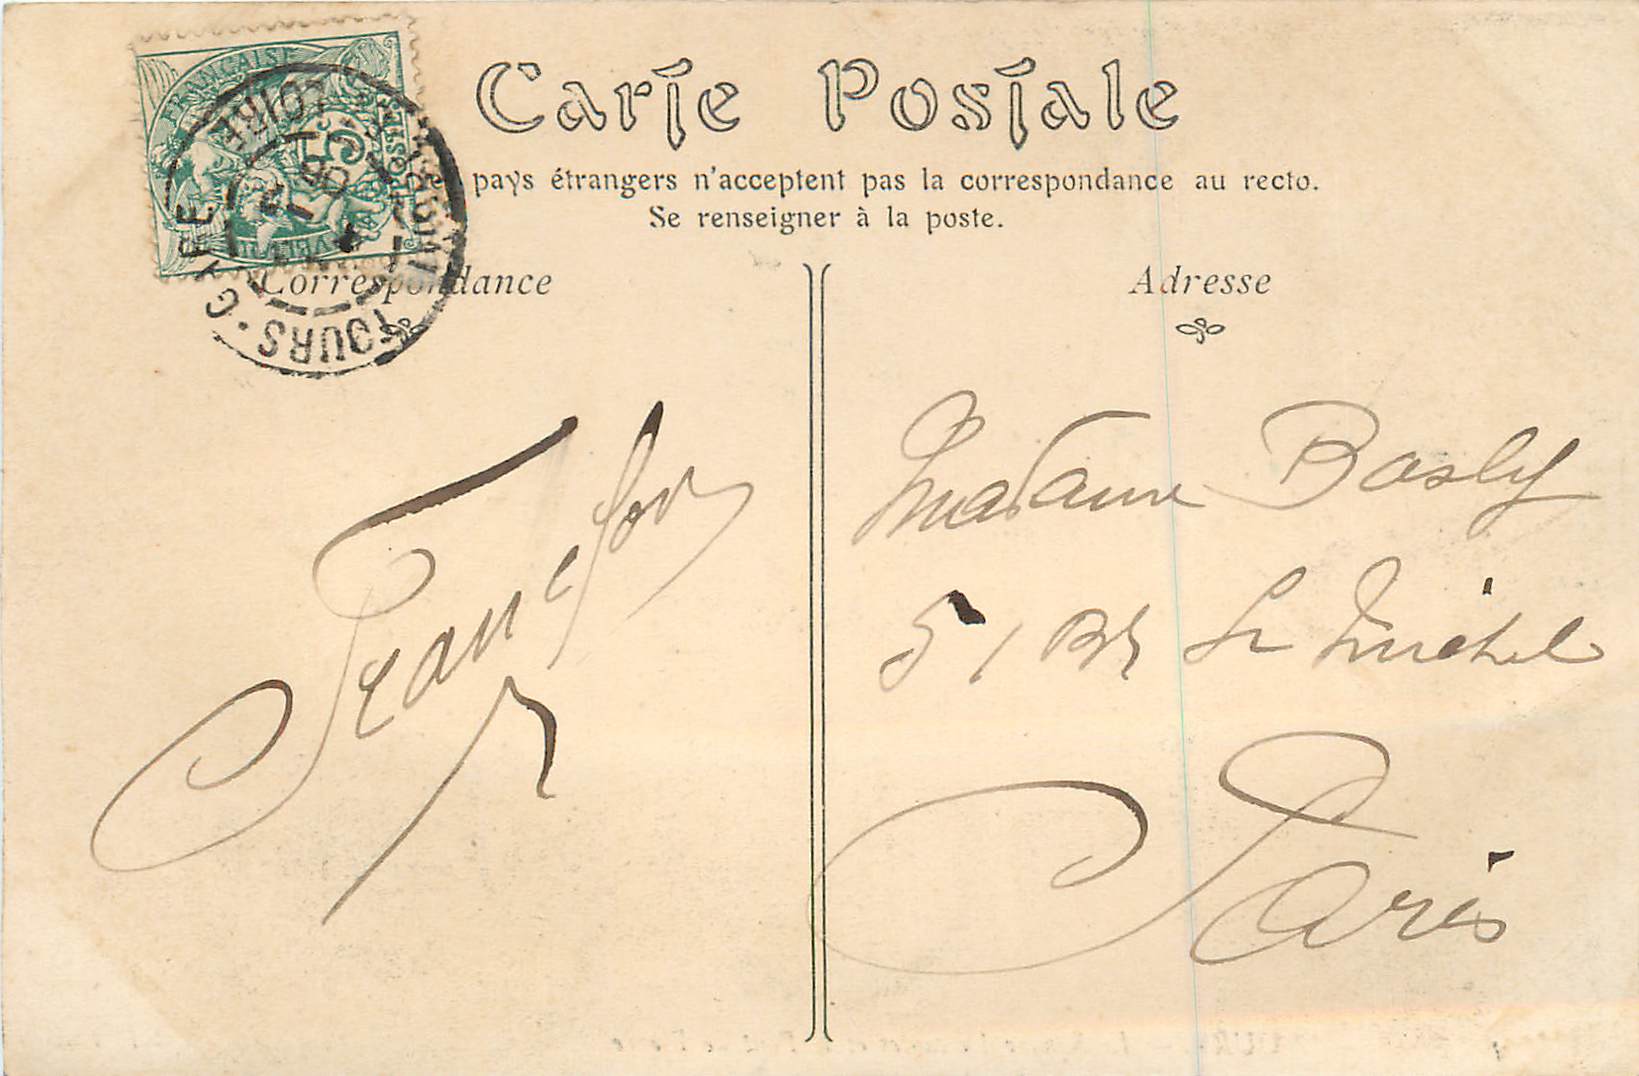 FRANÇAISE
5
TOURS · GARE
LOIRE
06
Carte Postale
pays étrangers n'acceptent pas la correspondance au recto.
Se renseigner à la poste.
Correspondance
Adresse
Madame Basly
51 Bd St Michel
Paris